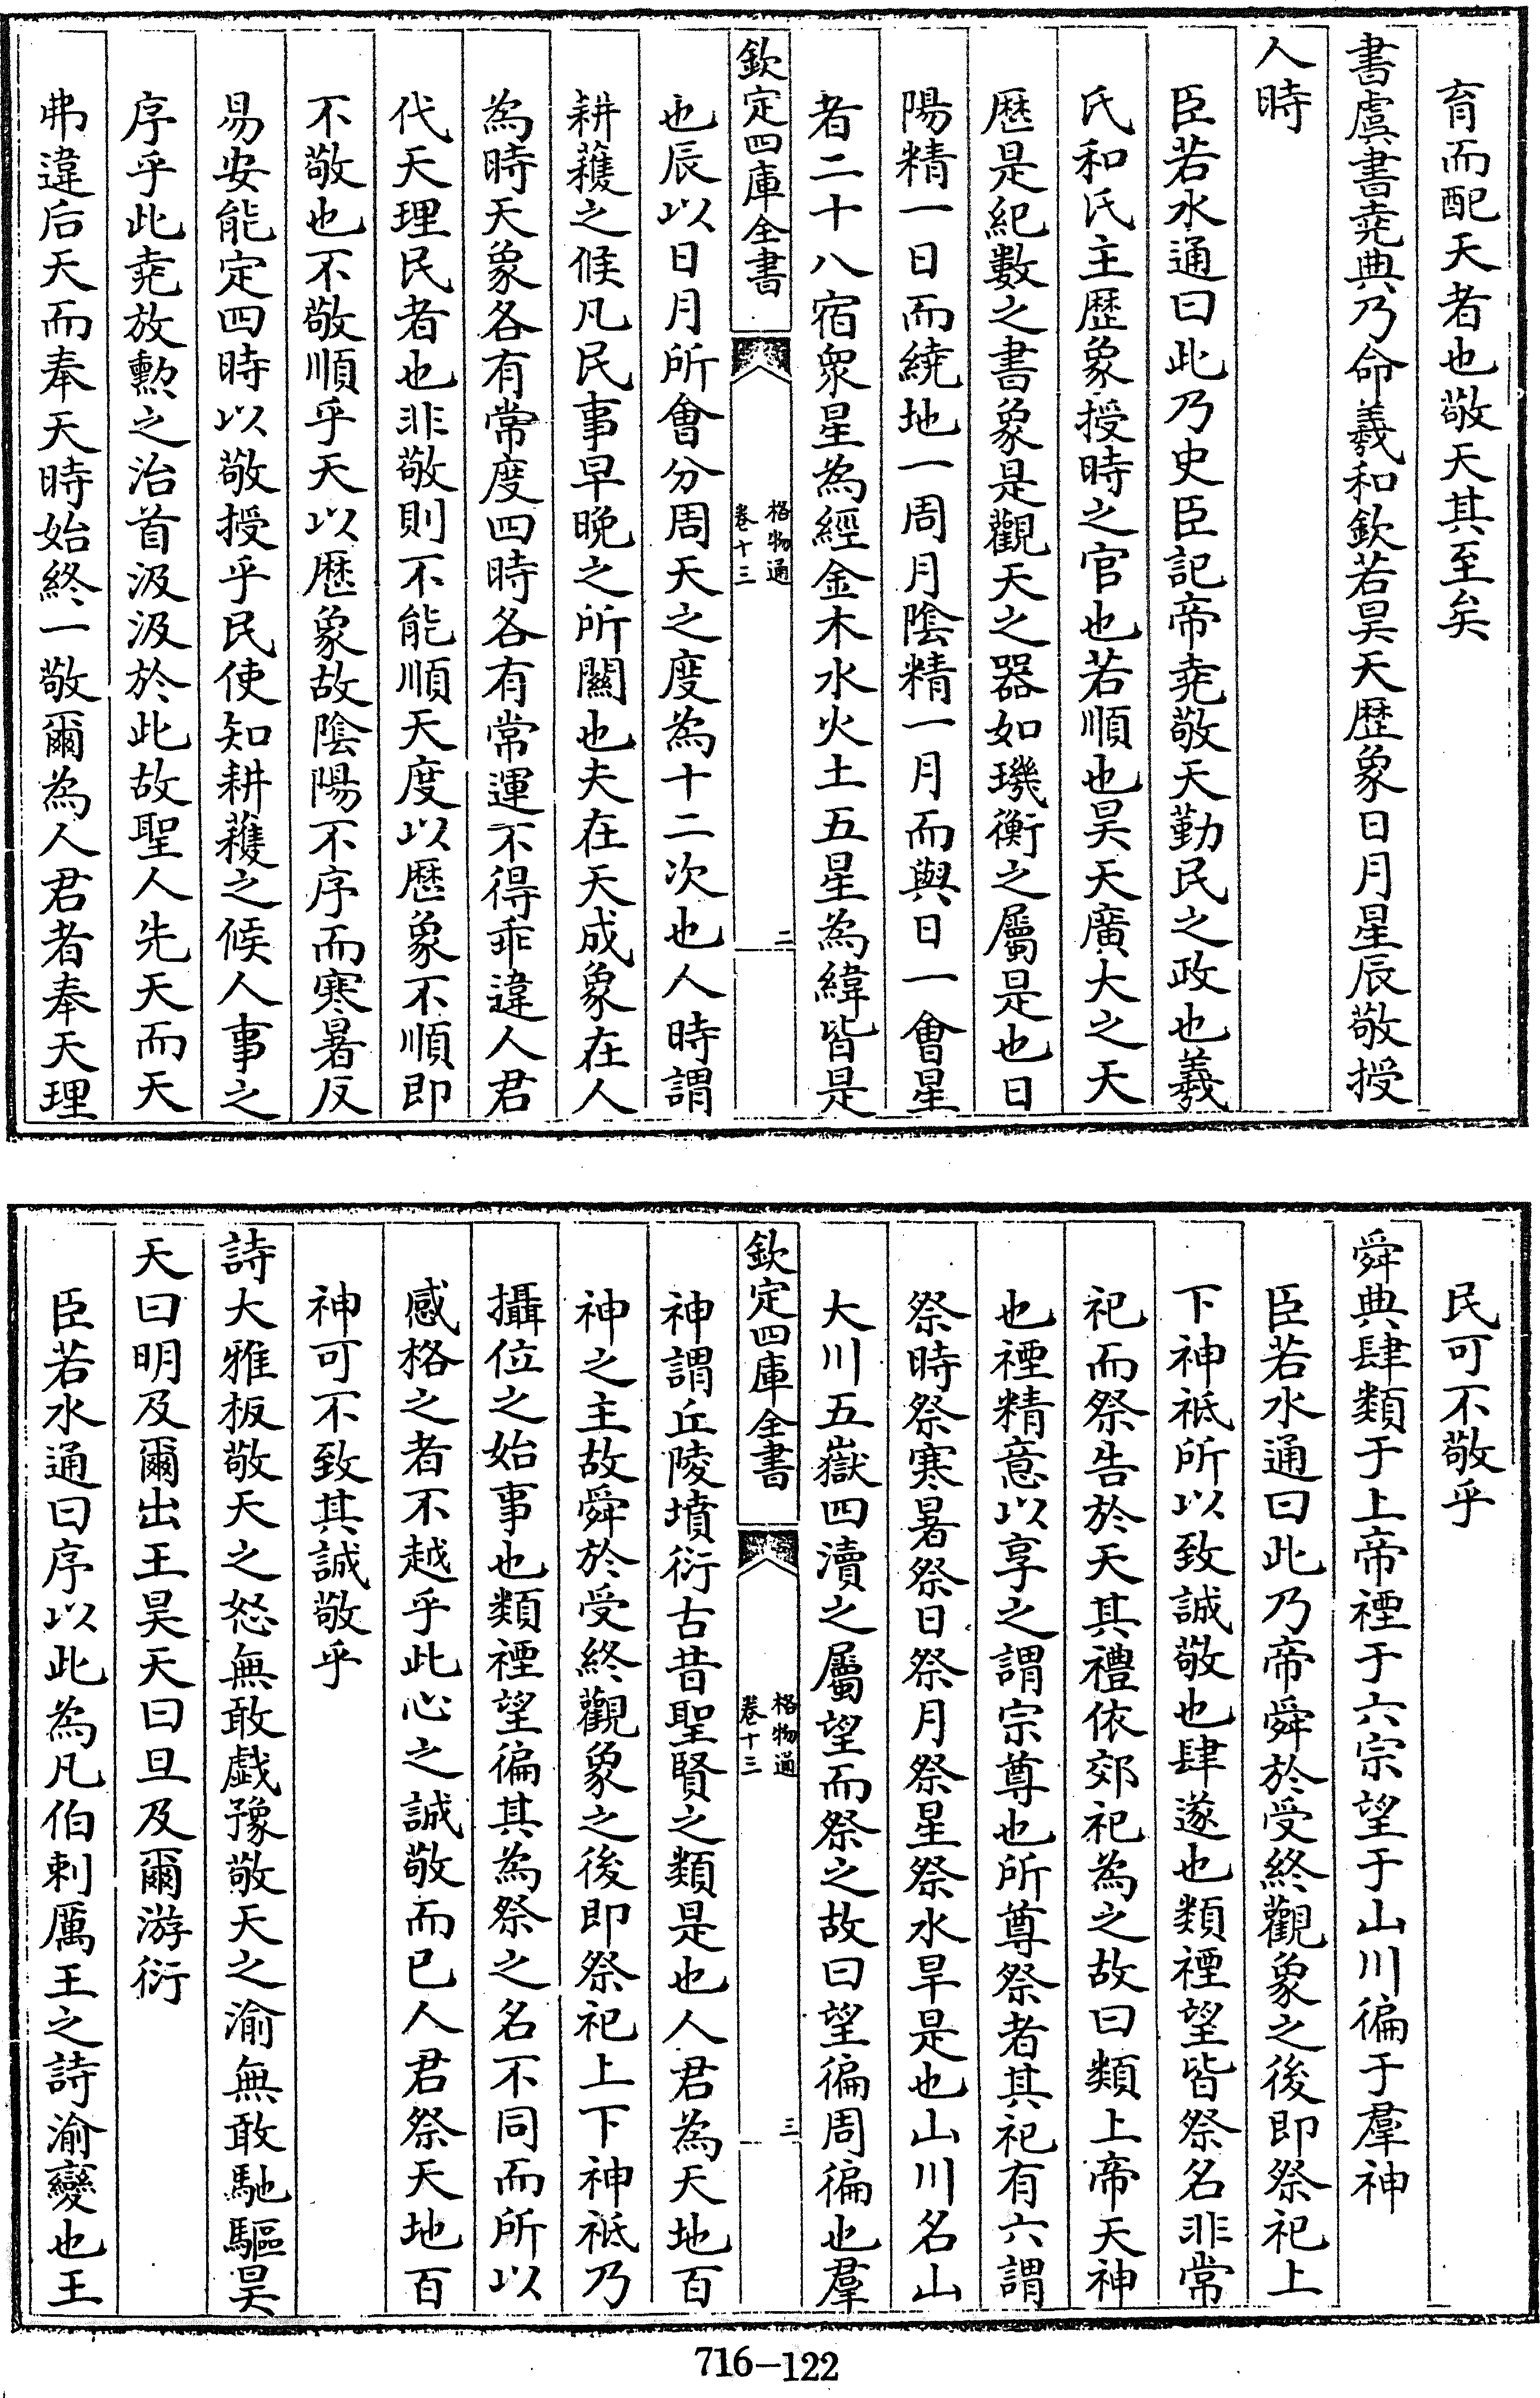 育而配天者也敬天其至矣
書虞書堯典乃命羲和欽若昊天歴象日月星辰敬授
人時
臣若水通曰此乃史臣記帝堯敬天勤民之政也羲
氏和氏主歴象授時之官也若順也昊天廣大之天
歴是紀數之書象是觀天之器如璣衡之屬是也日
陽精一日而繞地一周月陰精一月而與日一會星
者二十八宿衆星為經金木水火土五星為緯皆是
欽定四庫全書
格物通
卷十三
二
也辰以日月所會分周天之度為十二次也人時謂
耕穫之候凡民事早晚之所關也夫在天成象在人
為時天象各有常度四時各有常運不得乖違人君
代天理民者也非敬則不能順天度以歴象不順即
不敬也不敬順乎天以歴象故陰陽不序而寒暑反
易安能定四時以敬授乎民使知耕穫之候人事之
序乎此堯放勲之治首汲汲於此故聖人先天而天
弗違后天而奉天時始終一敬爾為人君者奉天理
民可不敬乎
舜典肆類于上帝禋于六宗望于山川徧于羣神
臣若水通曰此乃帝舜於受終觀象之後即祭祀上
下神祇所以致誠敬也肆遂也類禋望皆祭名非常
祀而祭告於天其禮依郊祀為之故曰類上帝天神
也禋精意以享之謂宗尊也所尊祭者其祀有六謂
祭時祭寒暑祭日祭月祭星祭水旱是也山川名山
大川五嶽四瀆之屬望而祭之故曰望徧周徧也羣
欽定四庫全書
格物通
卷十三
三
神謂丘陵墳衍古昔聖賢之類是也人君為天地百
神之主故舜於受終觀象之後即祭祀上下神祇乃
攝位之始事也類禋望徧其為祭之名不同而所以
感格之者不越乎此心之誠敬而已人君祭天地百
神可不致其誠敬乎
詩大雅板敬天之怒無敢戲豫敬天之渝無敢馳驅昊
天曰明及爾出王昊天曰旦及爾游衍
臣若水通曰序以此為凡伯刺厲王之詩渝變也王
716-122